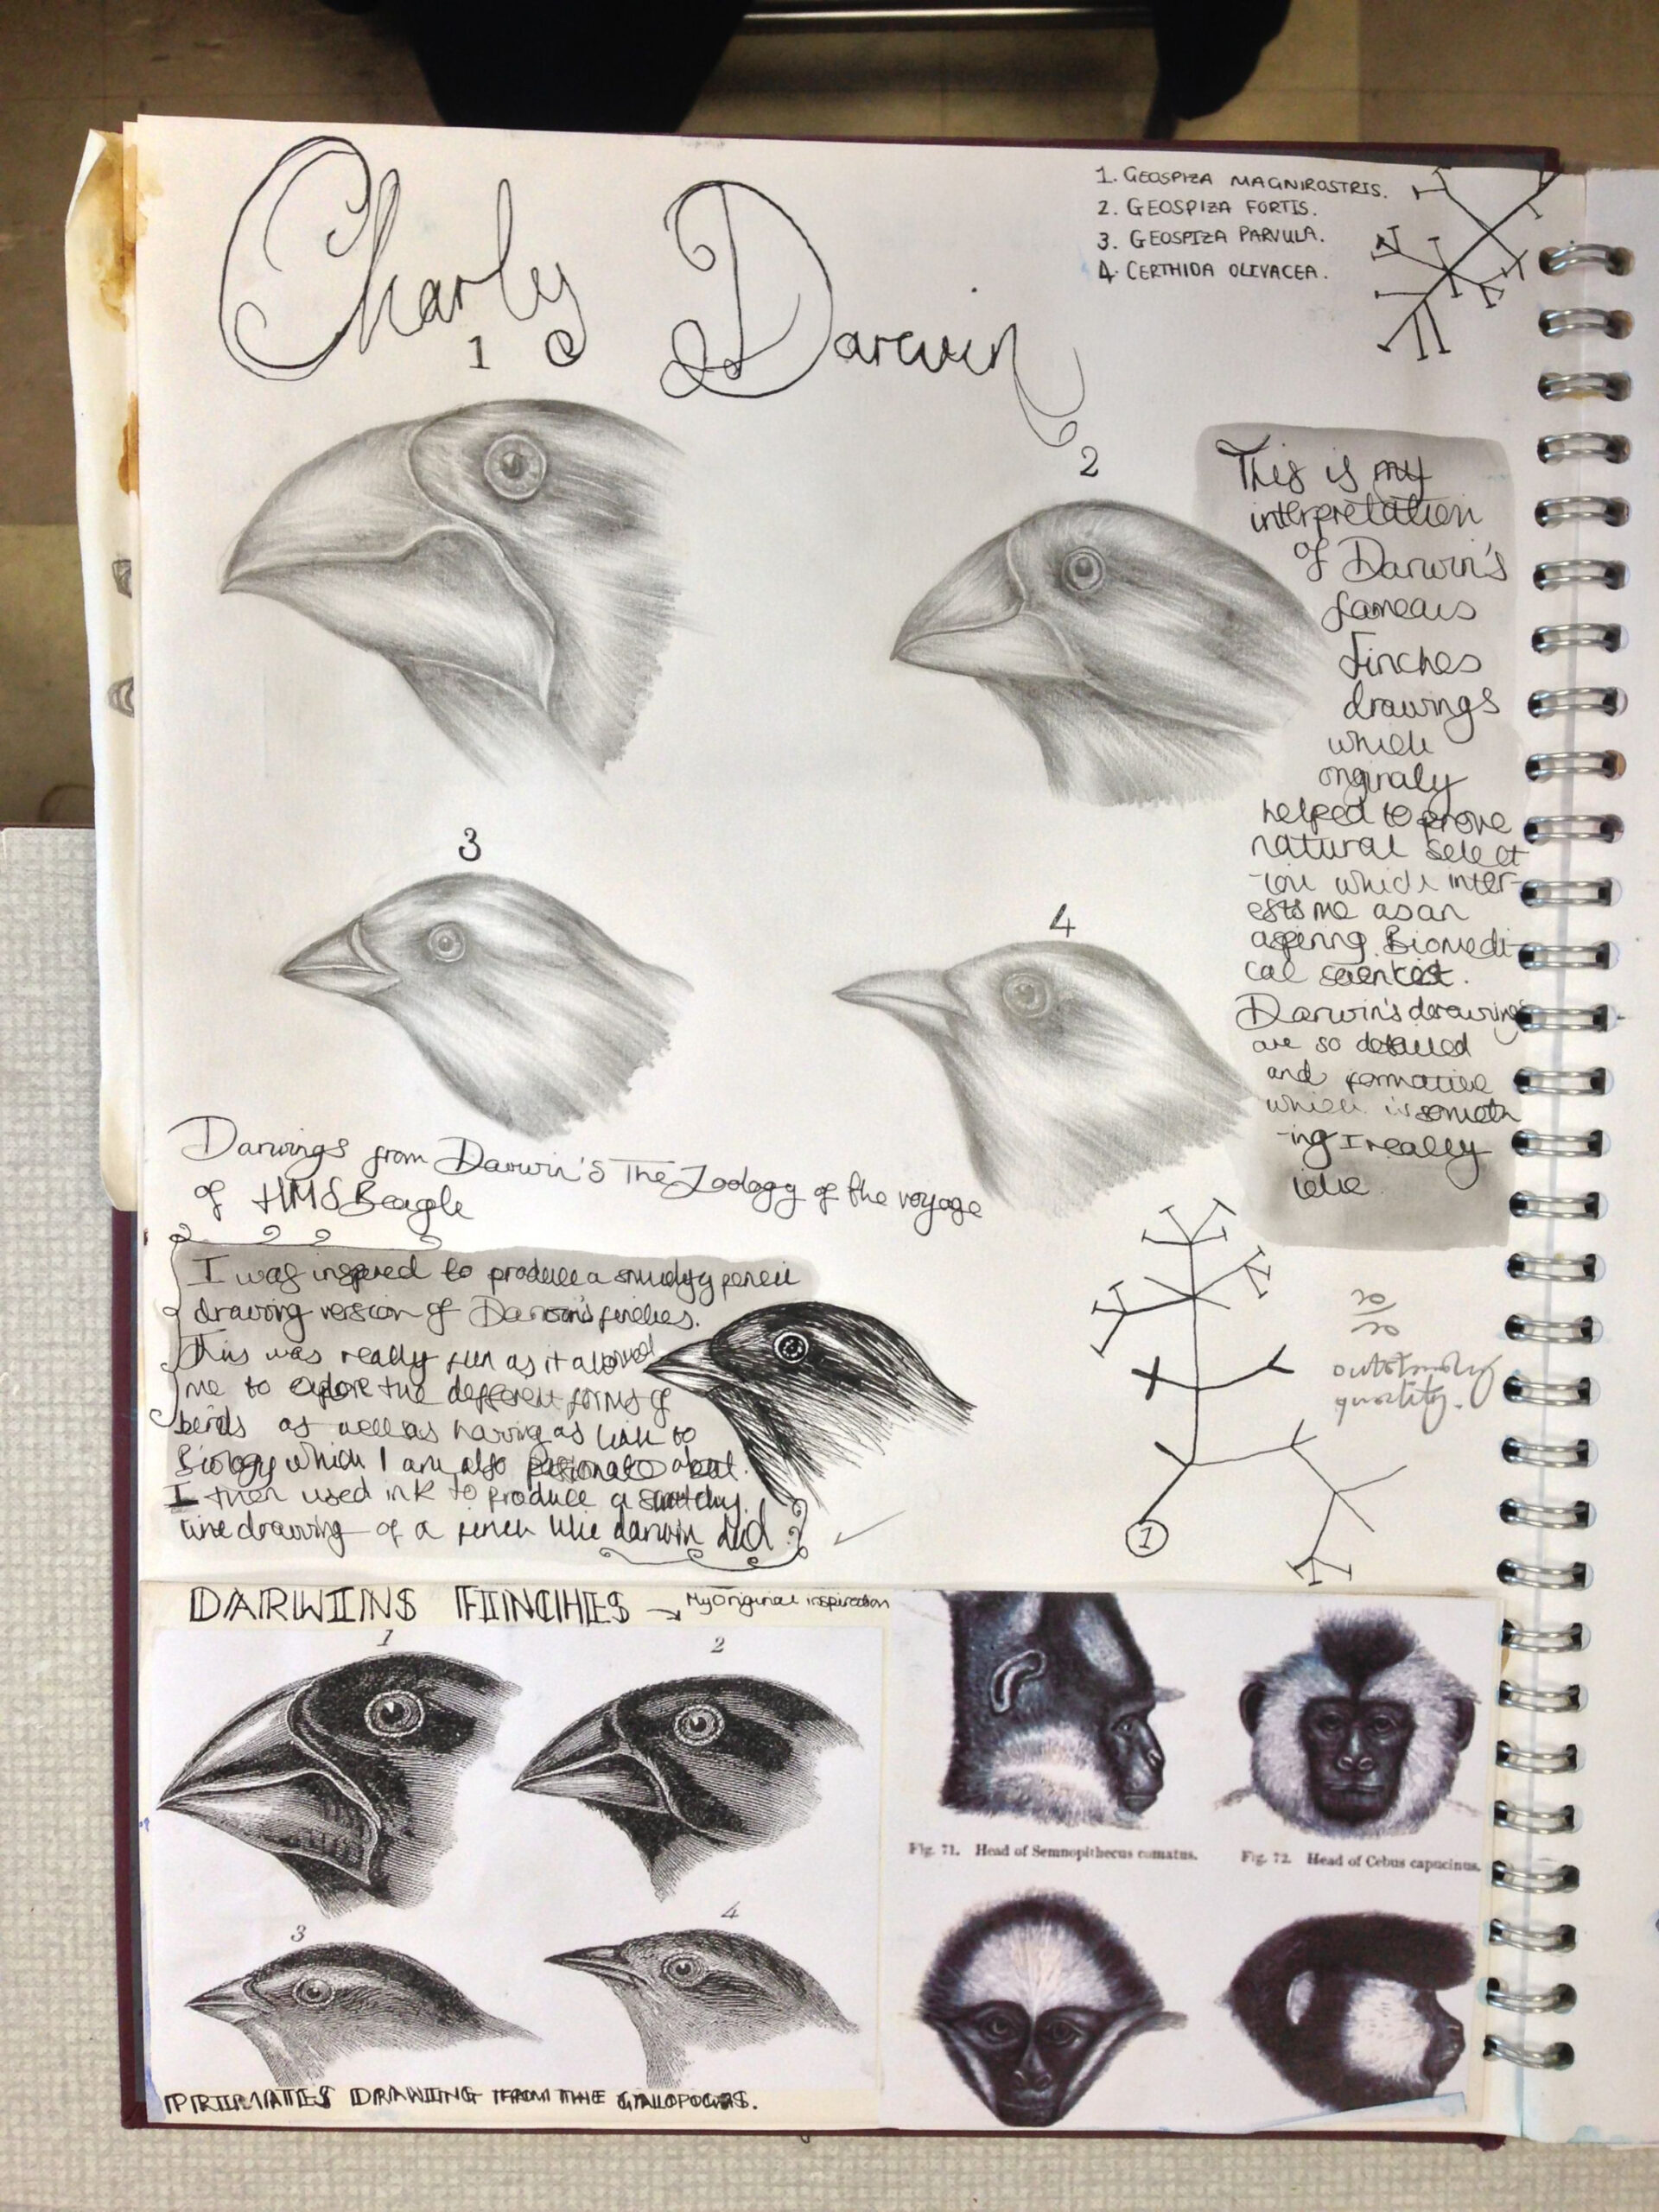 Charles Darwin
1. GEOSPIZA MAGNIROSTRIS.
2. GEOSPIZA FORTIS.
3. GEOSPIZA PARVULA.
4. CERTHIDA OLIVACEA.
1
2
3
4
This is my
interpretation
of Darwin's
famous
finches
drawings
which
originaly
helped to prove
natural select
-ion which inter-
ests me as an
aspiring Biomedi-
cal scientist.
Darwin's drawings
are so detailed
and formative
which is someth
-ing I really
like
Darwings from Darwin's The Zoology of the voyage
of HMS Beagle
I was inspired to produce a smudgy pencil
drawing version of Darwin's finches.
This was really fun as it allowed
me to explore the different forms of
birds as well as having as link to
Biology which I am also passionate about.
I then used ink to produce a sketchy
line drawing of a finch like darwin did
1
20
20
outstanding
quality.
DARWINS FINCHES → My original inspiration
1
2
3
4
PRIMATES DRAWING FROM THE GALLOPOGAS.
Fig. 71. Head of Semnopithecus comatus.
Fig. 72. Head of Cebus capucinus.